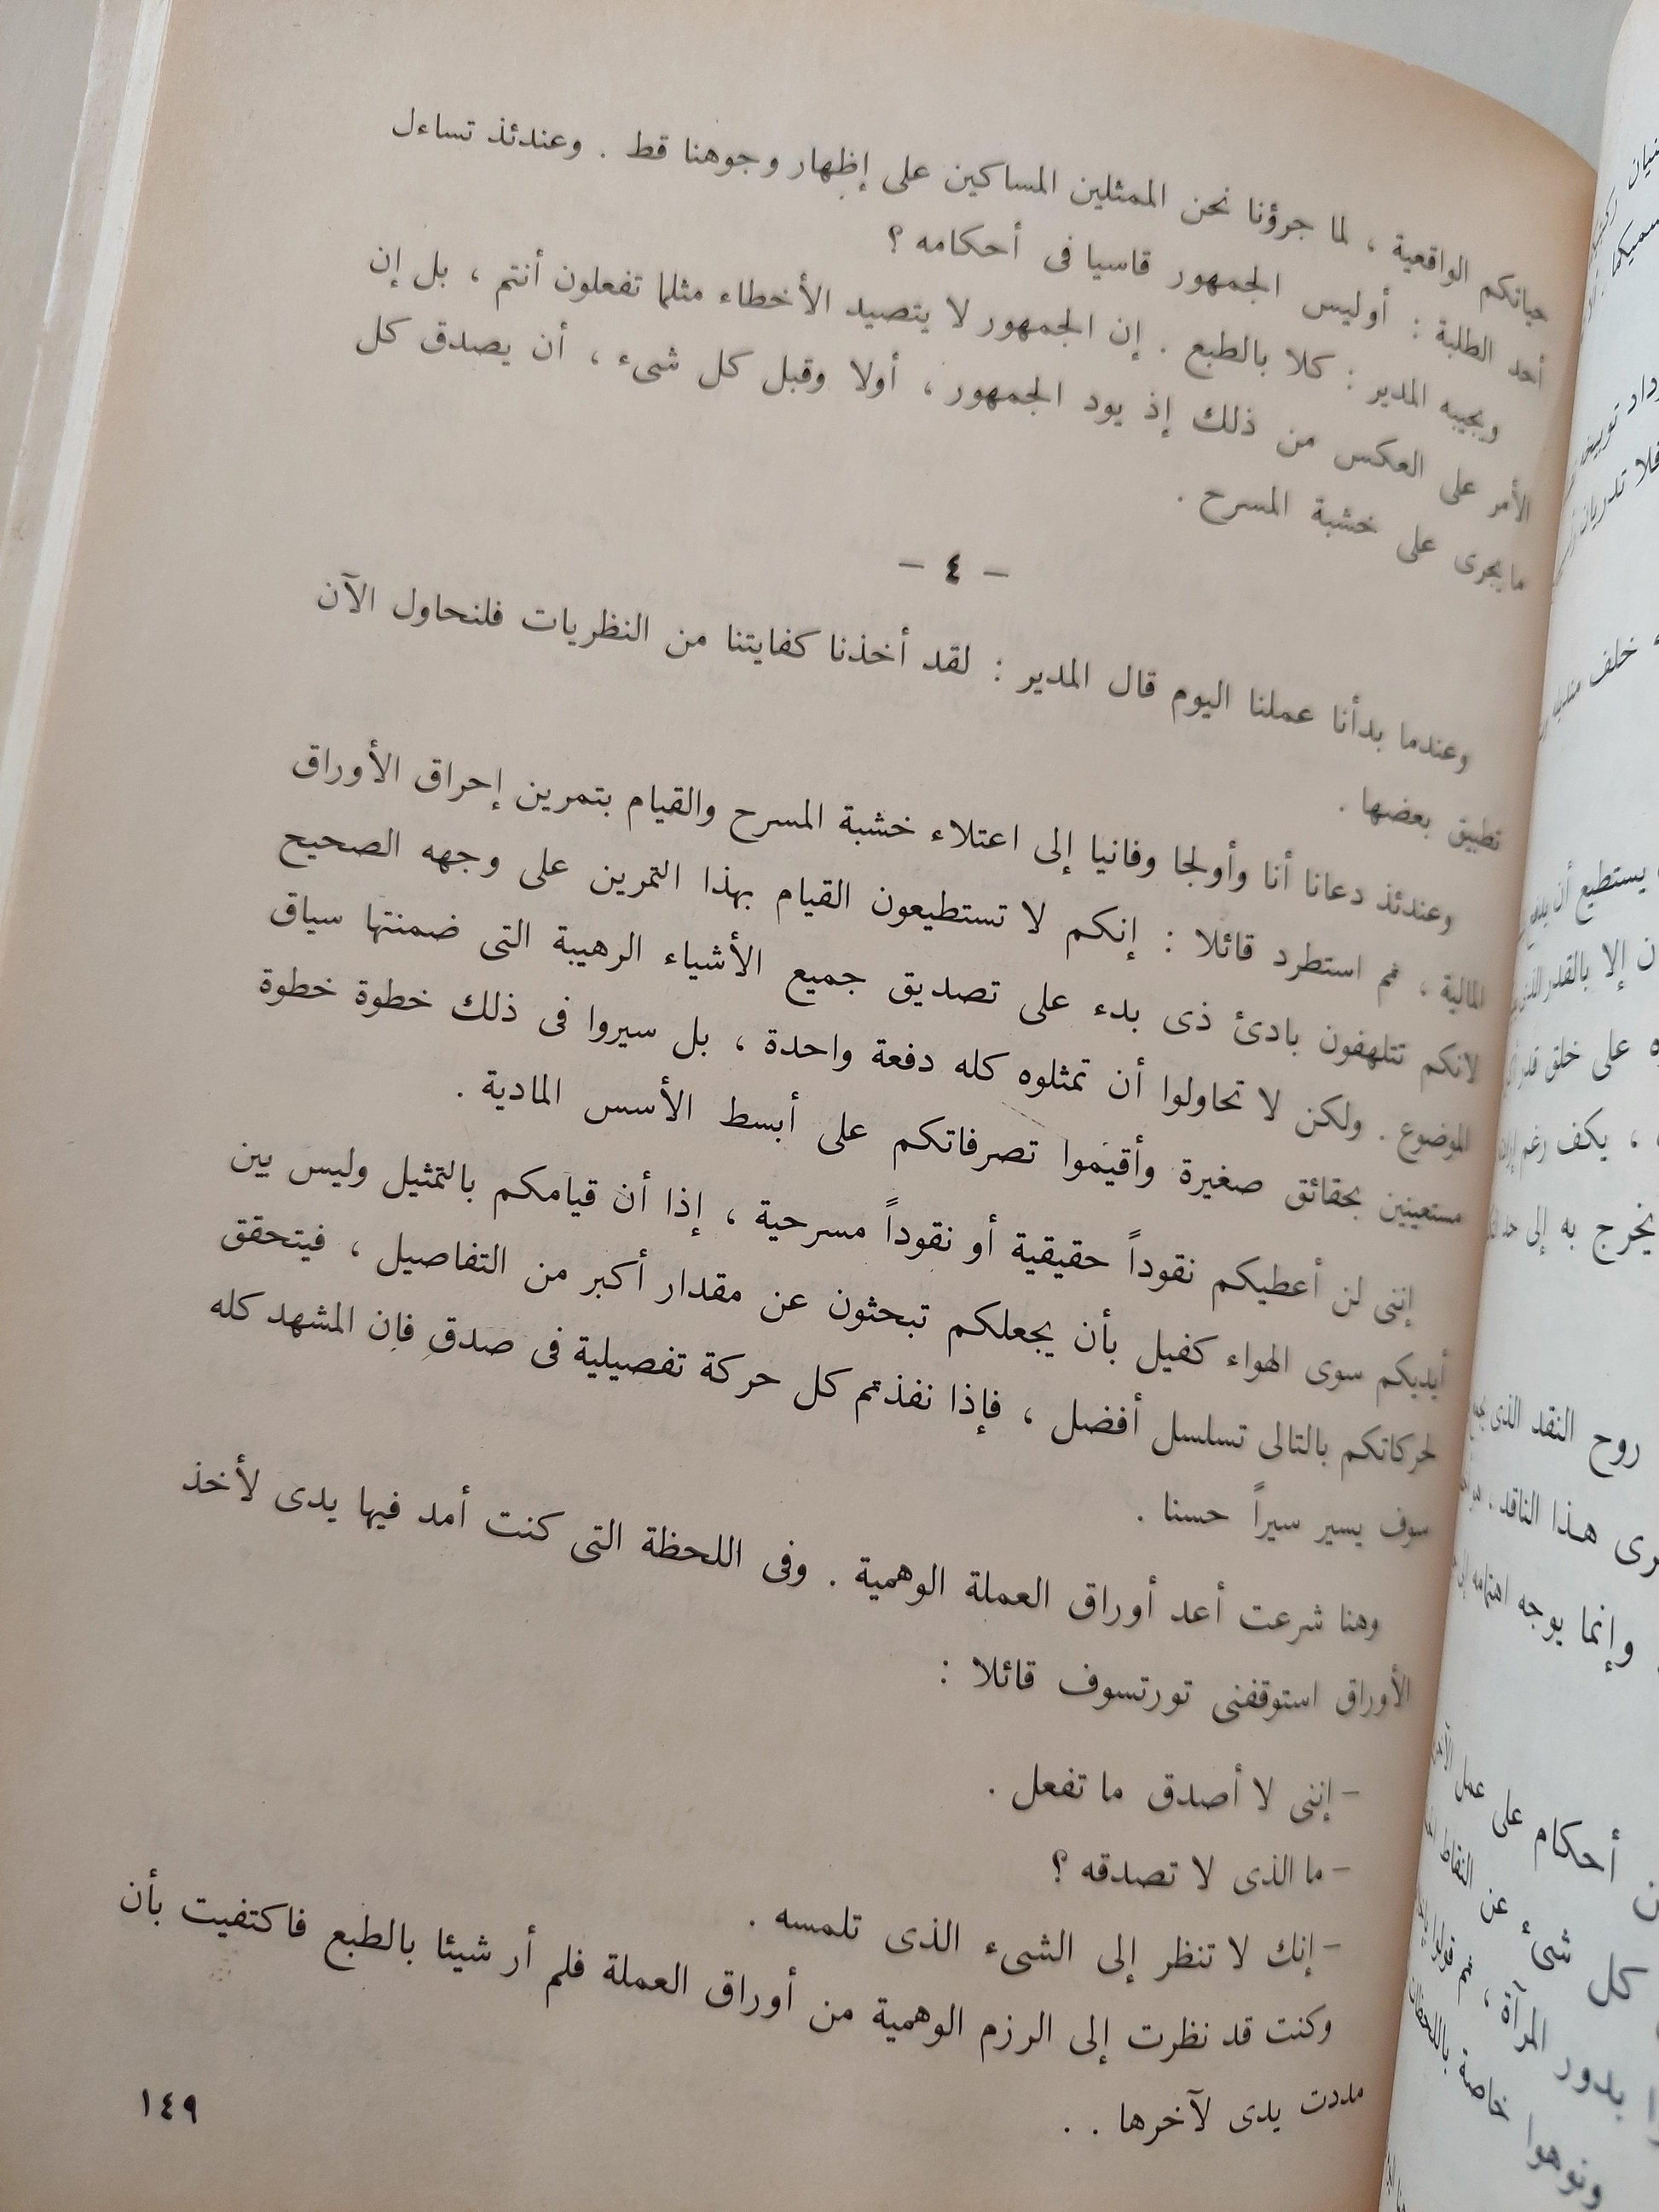 حياتكم الواقعية ، لما جرؤنا نحن الممثلين المساكين على إظهار وجوهنا قط . وعندئذ تساءل
أحد الطلبة : أوليس الجمهور قاسيا فى أحكامه ؟
ويجيبه المدير : كلا بالطبع . إن الجمهور لا يتصيد الأخطاء مثلما تفعلون أنتم ، بل إن
الأمر على العكس من ذلك إذ يود الجمهور ، أولا وقبل كل شىء ، أن يصدق كل
ما يجرى على خشبة المسرح .
– ٤ –
وعندما بدأنا عملنا اليوم قال المدير : لقد أخذنا كفايتنا من النظريات فلنحاول الآن
تطبيق بعضها .
وعندئذ دعانا أنا وأولجا وفانيا إلى اعتلاء خشبة المسرح والقيام بتمرين إحراق الأوراق
المالية ، ثم استطرد قائلا : إنكم لا تستطيعون القيام بهذا التمرين على وجهه الصحيح
لانكم تتلهفون بادئ ذى بدء على تصديق جميع الأشياء الرهيبة التى ضمنتها سياق
الموضوع . ولكن لا تحاولوا أن تمثلوه كله دفعة واحدة ، بل سيروا فى ذلك خطوة خطوة
مستعينين بحقائق صغيرة وأقيموا تصرفاتكم على أبسط الأسس المادية .
إننى لن أعطيكم نقوداً حقيقية أو نقوداً مسرحية ، إذا أن قيامكم بالتمثيل وليس بين
أيديكم سوى الهواء كفيل بأن يجعلكم تبحثون عن مقدار أكبر من التفاصيل ، فيتحقق
لحركاتكم بالتالى تسلسل أفضل ، فإذا نفذتم كل حركة تفصيلية فى صدق فإن المشهد كله
سوف يسير سيراً حسنا .
وهنا شرعت أعد أوراق العملة الوهمية . وفى اللحظة التى كنت أمد فيها يدى لأخذ
الأوراق استوقفنى تورتسوف قائلا :
– إننى لا أصدق ما تفعل .
– ما الذى لا تصدقه ؟
– إنك لا تنظر إلى الشىء الذى تلمسه .
وكنت قد نظرت إلى الرزم الوهمية من أوراق العملة فلم أر شيئا بالطبع فاكتفيت بأن
مددت يدى لآخرها . .
١٤٩
خلف
يستطيع أن
إلا بالقدر
على خلق
، يكف رغم
يخرج به إلى
روح النقد الذى
هذا الناقد
وإنما يوجه اهتمامه
أحكام على عمل
كل شىء عن النقاط
بدور المرآة ، ثم
ونوهوا خاصة باللحظات